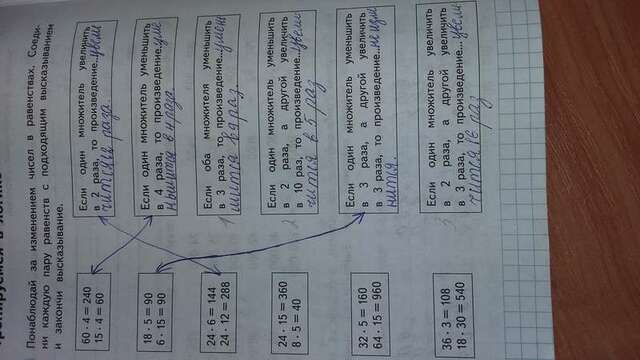 Понаблюдай за изменением чисел в равенствах. Соеди-
ни каждую пару равенств с подходящим высказыванием
и закончи высказывание.
60 · 4 = 240
15 · 4 = 60
Если один множитель увеличить
в 2 раза, то произведение...увели
чится в 2 раза.
18 · 5 = 90
6 · 15 = 90
Если один множитель уменьшить
в 4 раза, то произведение...уме
ньшится в 4 раза.
24 · 6 = 144
24 · 12 = 288
1
Если оба множителя уменьшить
в 3 раза, то произведение...умень
шится в 9 раз.
24 · 15 = 360
8 · 5 = 40
2
Если один множитель уменьшить
в 2 раза, а другой увеличить
в 10 раз, то произведение...увели
чится в 5 раз
32 · 5 = 160
64 · 15 = 960
Если один множитель уменьшить
в 3 раза, а другой увеличить
в 3 раза, то произведение...не изме
нится.
36 · 3 = 108
18 · 30 = 540
3
Если один множитель увеличить
в 2 раза, а другой увеличить
в 3 раза, то произведение...увели
чится в 6 раз